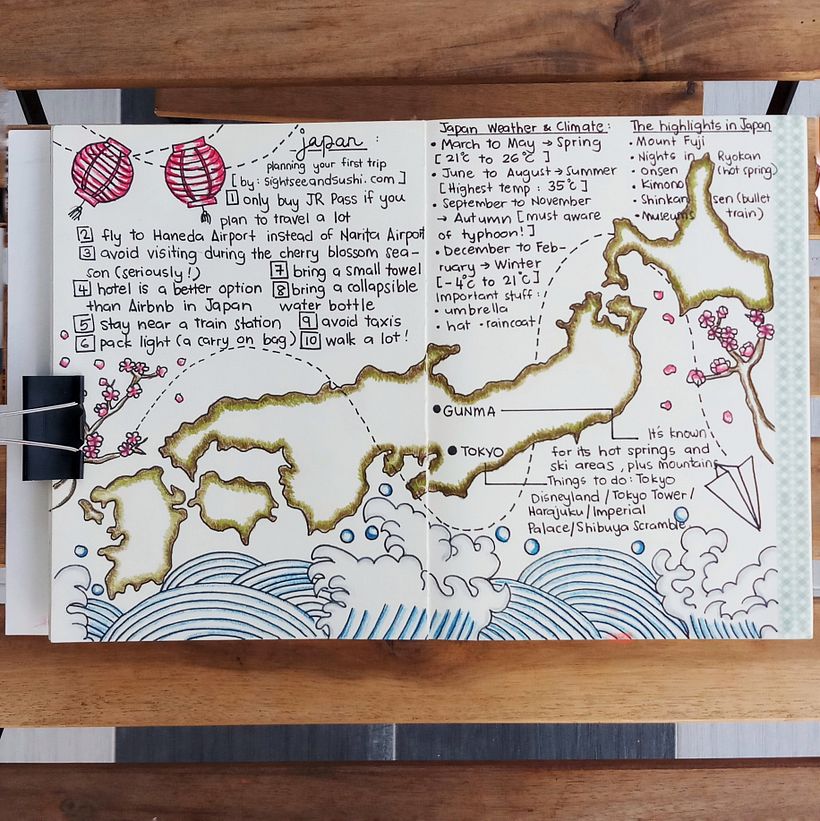 japan :
planning your first trip
[by: sightseeandsushi.com]
1 only buy JR Pass if you
plan to travel a lot
2 fly to Haneda Airport instead of Narita Airport
3 avoid visiting during the cherry blossom sea-
son (seriously!)
4 hotel is a better option
than Airbnb in Japan
5 stay near a train station
6 pack light (a carry on bag)
7 bring a small towel
8 bring a collapsible
water bottle
9 avoid taxis
10 walk a lot!
Japan Weather & Climate :
• March to May → Spring
[21°C to 26°C]
• June to August → Summer
[Highest temp : 35°C]
• September to November
→ Autumn [must aware
of typhoon!]
• December to Feb-
ruary → Winter
[-4°C to 21°C]
Important stuff :
• umbrella
• hat • raincoat
The highlights in Japan
• Mount Fuji
• Nights in Ryokan
• onsen (hot spring)
• Kimono
• Shinkansen (bullet
train)
• Museums
• GUNMA
It's known
for its hot springs and
ski areas, plus mountains
• TOKYO
Things to do : Tokyo
Disneyland / Tokyo Tower /
Harajuku / Imperial
Palace / Shibuya Scramble